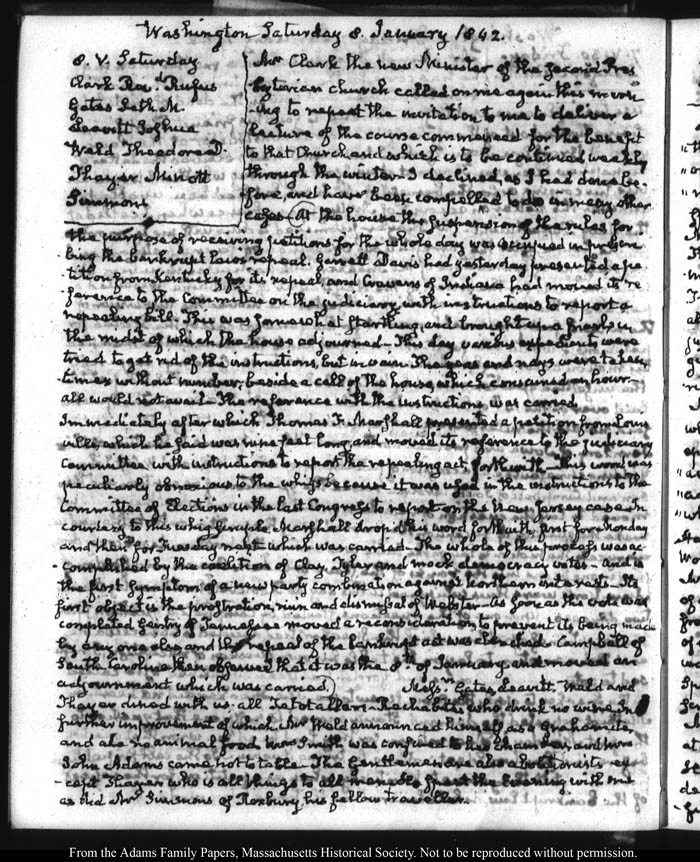 Washington Saturday 8. January 1842.
8. V. Saturday
Clark Rev.d Rufus
Gates Seth M.
Leavitt Joshua
Weld Theodore D.
Thayer Minott
Simmons
Mr Clark the new Minister of the second Pres
byterian church called on me again this morn
ing to repeat the invitation to me to deliver a
Lecture of the course commenced for the benefit
to that Church and which is to be continued weekly
through the winter. I declined, as I had done be-
fore, and have been compelled to do in many other
cases. (At the house, the suspension of the rules for
the purpose of receiving petitions for the whole day was occupied in presen
ting the bankrupt laws repeal. Garrett Davis had yesterday presented a pe
tition from Kentucky for its repeal, and Cravens of Indiana had moved its re
ference to the Committee on the judiciary, with instructions to report a
repealing bill. This was somewhat startling, and brought up a in
the midst of which the house adjourned— This day various expedients were
tried to get rid of the instructions, but in vain. The yeas and nays were taken
times without number, beside a call of the house, which consumed an hour—
all would not avail— The reference with the instructions was carried.
Immediately after which Thomas F. Marshall presented a petition from Louis
ville, which he said was nine feet long, and moved its reference to the judiciary
Committee with instructions to report the repealing act, forthwith— this word was
peculiarly obnoxious to the whigs because it was used in the instructions to the
Committee of Elections in the last Congress to report on the New Jersey case— In
courtesy to this whig scruple Marshall drop'd his word forthwith, first for Monday
and then for Tuesday next— which was carried— The whole of this process was ac
complished by the coalition of Clay, Tyler and mock democracy votes— and is
the first symptom of a new party combination against Northern interests— Its
first object is the prostration, ruin and dismissal of Webster— As soon as this vote was
completed Gentry of Tennessee moved a reconsideration, to prevent its being made
by any one else, and the repeal of the bankrupt act was clenched. Campbell of
South Carolina then observed that it was the 8th of January, and moved an
adjournment which was carried.) Messrs Gates, Leavitt, Weld and
Thayer dined with us. all Tetotallers— Rechabites, who drink no wine. In
further improvement of which Mr Weld announced himself as a Grahamite
and ate no animal food. Mrs Smith was confined to her chamber, and Mrs
John Adams came not to table. The Gentlemen are also abolitionists ex
cept Thayer who is all things to all men. He spent the Evening with me
as did Mr Simmons of Roxbury, his fellow traveller.
From the Adams Family Papers, Massachusetts Historical Society. Not to be reproduced without permission.